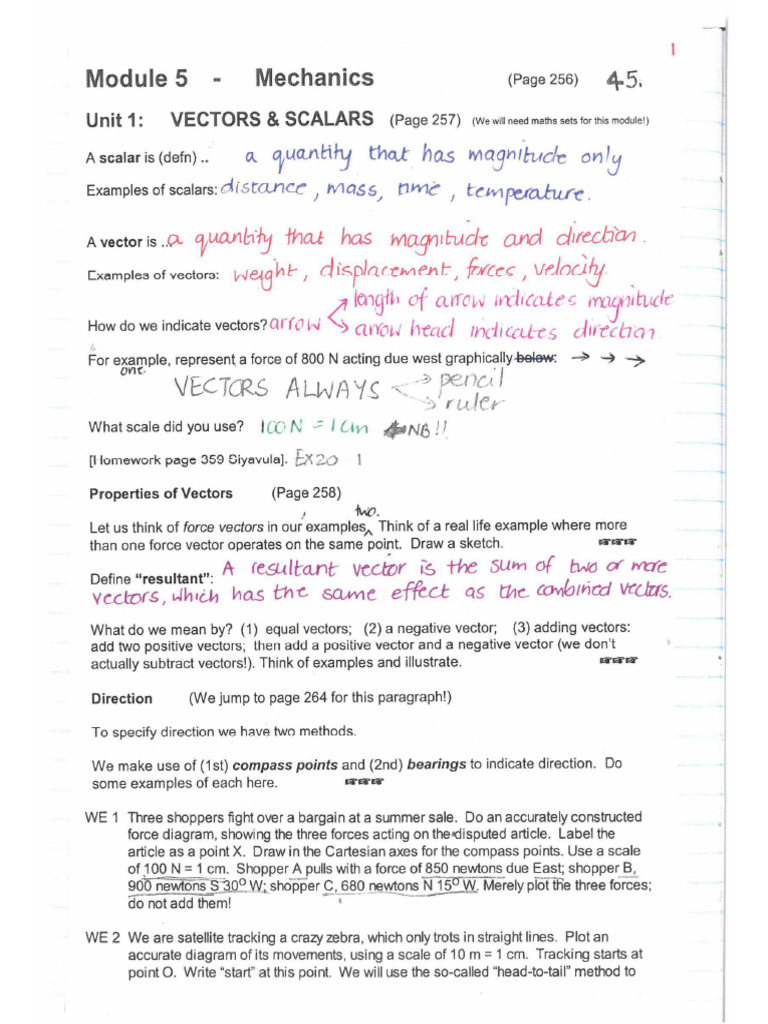 1
Module 5 - Mechanics (Page 256) 45.
Unit 1: VECTORS & SCALARS (Page 257) (We will need maths sets for this module!)
A scalar is (defn) .. a quantity that has magnitude only
Examples of scalars: distance, mass, time, temperature.
A vector is .. a quantity that has magnitude and direction.
Examples of vectors: weight, displacement, forces, velocity.
→ length of arrow indicates magnitude
How do we indicate vectors? arrow → arrow head indicates direction.
For example, represent a force of 800 N acting due west graphically below: → → →
one
VECTORS ALWAYS → pencil
→ ruler
What scale did you use? 100N = 1cm ← NB!!
[Homework page 359 Siyavula]. EX20 1
Properties of Vectors (Page 258)
two.
Let us think of force vectors in our examples. Think of a real life example where more
than one force vector operates on the same point. Draw a sketch.
Define "resultant": A resultant vector is the sum of two or more
vectors, which has the same effect as the combined vectors.
What do we mean by? (1) equal vectors; (2) a negative vector; (3) adding vectors:
add two positive vectors; then add a positive vector and a negative vector (we don't
actually subtract vectors!). Think of examples and illustrate.
Direction (We jump to page 264 for this paragraph!)
To specify direction we have two methods.
We make use of (1st) compass points and (2nd) bearings to indicate direction. Do
some examples of each here.
WE 1 Three shoppers fight over a bargain at a summer sale. Do an accurately constructed
force diagram, showing the three forces acting on the disputed article. Label the
article as a point X. Draw in the Cartesian axes for the compass points. Use a scale
of 100 N = 1 cm. Shopper A pulls with a force of 850 newtons due East; shopper B,
900 newtons S 30° W; shopper C, 680 newtons N 15° W. Merely plot the three forces;
do not add them!
WE 2 We are satellite tracking a crazy zebra, which only trots in straight lines. Plot an
accurate diagram of its movements, using a scale of 10 m = 1 cm. Tracking starts at
point O. Write "start" at this point. We will use the so-called "head-to-tail" method to